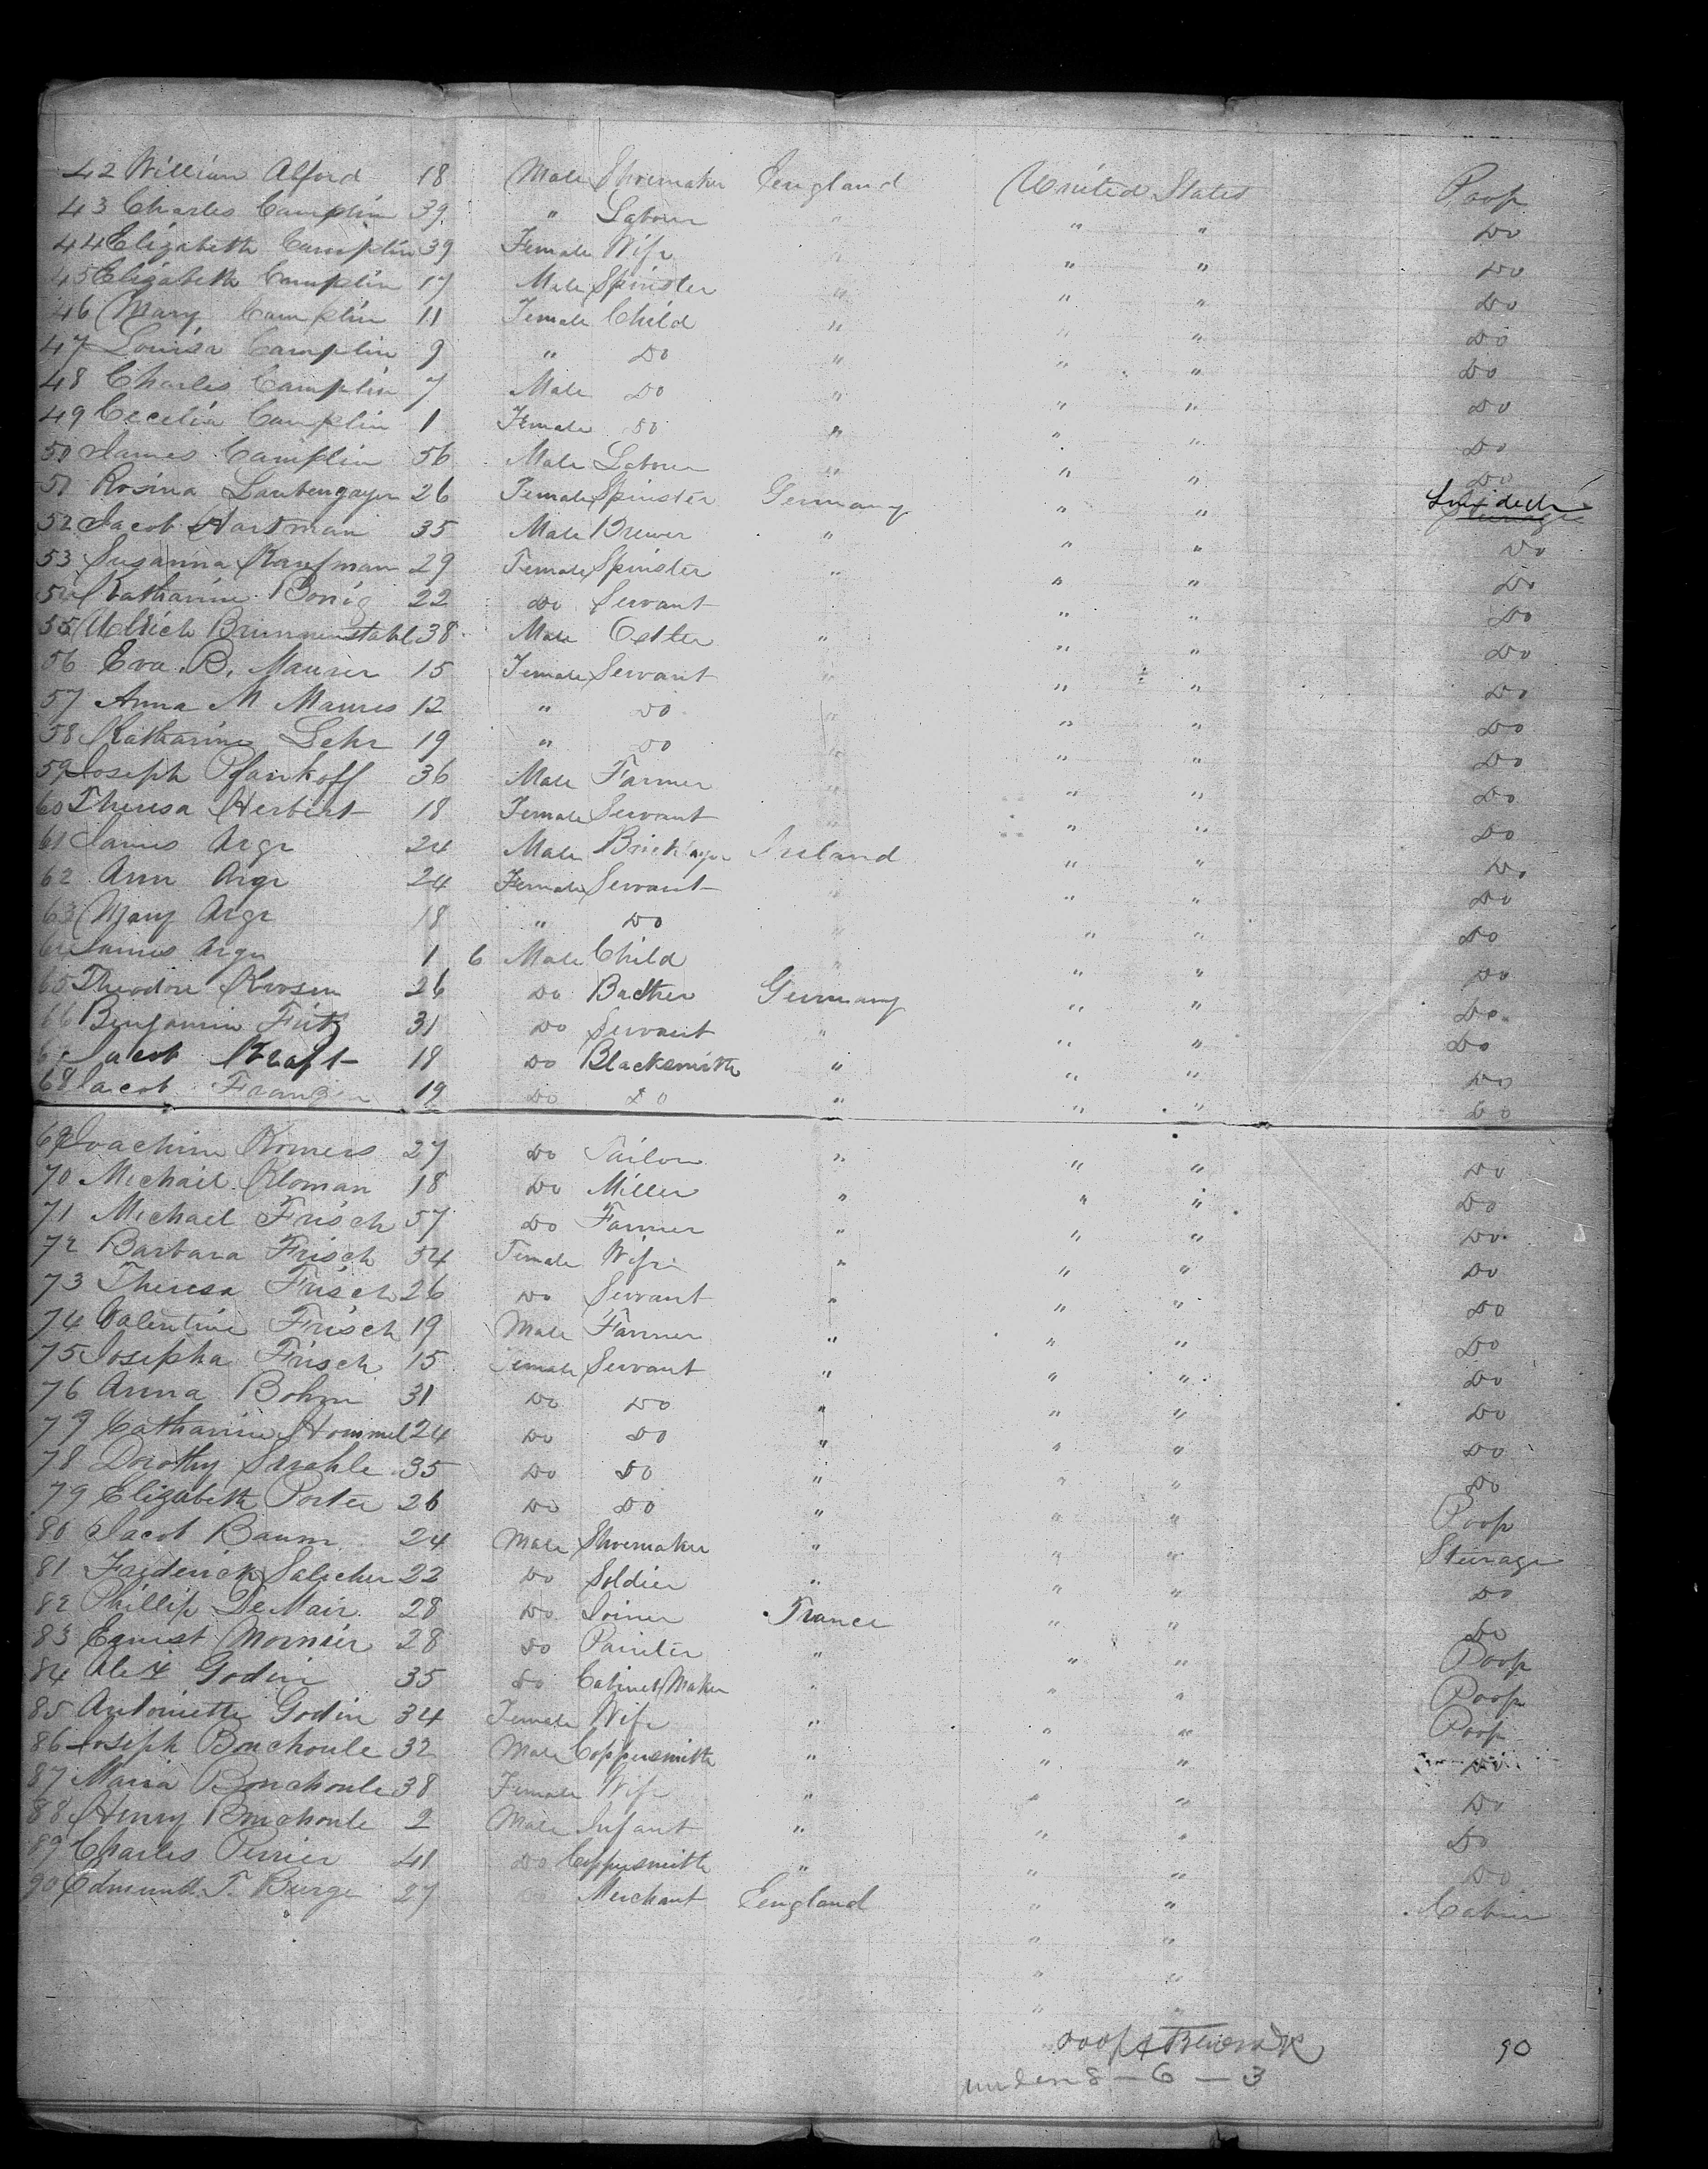 42 William Alford 18 Male Shoemaker Eengland United States Poop
43 Charles Camplin 39 " Labour " " " Do
44 Elizabeth Camplin 39 Female Wife " " " Do
45 Elizabeth Camplin 17 Male Spinster " " " Do
46 Mary Camplin 11 Female Child " " " Do
47 Louisa Camplin 9 " Do " " " Do
48 Charles Camplin 7 Male Do " " " Do
49 Cecelia Camplin 1 Female Do " " " Do
50 James Camplin 56 Male Labour " " " Do
51 Rosina Laubengayer 26 Female Spinster Germany " "
52 Jacob Hartman 35 Male Brewer " " " Do
53 Susanna Kaufman 29 Female Spinster " " " Do
54 Katharine Bonig 22 Do Servant " " Do
55 Ullrich Brunnenstahl 38 Male Ostler " " " Do
56 Eva B. Maurer 15 Female Servant " " " Do
57 Anna M Maures 12 " Do " " " Do
58 Katharine Lehr 19 " Do " " " Do
59 Joseph Pfankoff 36 Male Farmer " " " Do
60 Theresa Herbert 18 Female Servant " " " Do
61 James Arge 24 Male Bricklayer Ireland " " Do
62 Ann Arge 24 Female Servant " " " Do
63 Mary Arge 18 " Do " " " Do
64 James Arge 1 6 Male Child " " " Do
65 Theodore 26 Do Germany " " Do
66 Benjamin Fritz 31 Do Servant " " " Do
67 Jacob Kraft 18 Do Blacksmith " " " Do
68 Jacob 19 Do Do " " " Do
69 Joachim Komers 27 Do Tailor " " " Do
70 Michail Kloman 18 Do Miller " " " Do
71 Michael Frisch 57 Do Farmer " " " Do
72 Barbara Frisch 54 Female Wife " " " Do
73 Theresa Frisch 26 Do Servant " " " Do
74 Valentine Frisch 19 Male Farmer " " " Do
75 Josepha Frisch 15 Female Servant " " " Do
76 Anna Bohm 31 Do Do " " " Do
79 Catharine Hommel 24 Do Do " " " Do
78 Dorothy 35 Do Do " " " Do
79 Elizabeth Porter 26 Do Do " " " Poop
80 Jacob Baum 24 Male Shoemaker " " " Steerage
81 Frederick Salicher 22 Do Soldier " " " Do
82 Phillip DeMair 28 Do Joiner France " " Do
83 Egnist 28 Do Painter " " " Poop
84 Alex Godin 35 Do Cabinet Maker " " " Poop
85 Antoinette Godin 34 Female Wife " " " Poop
86 Joseph Bouchoule 32 Male Coppersmith " " " Do
87 Maria Bouchoule 38 Female Wife " " " Do
88 Henry Bouchoule 2 Male Infant " " " Do
89 Charles Perrier 41 Do Coppersmith " " " Do
90 Edmund T. Burge 27 Do Merchant Eengland " " Cabin
" "
" "
" "
90
under 8 – 6 – 3